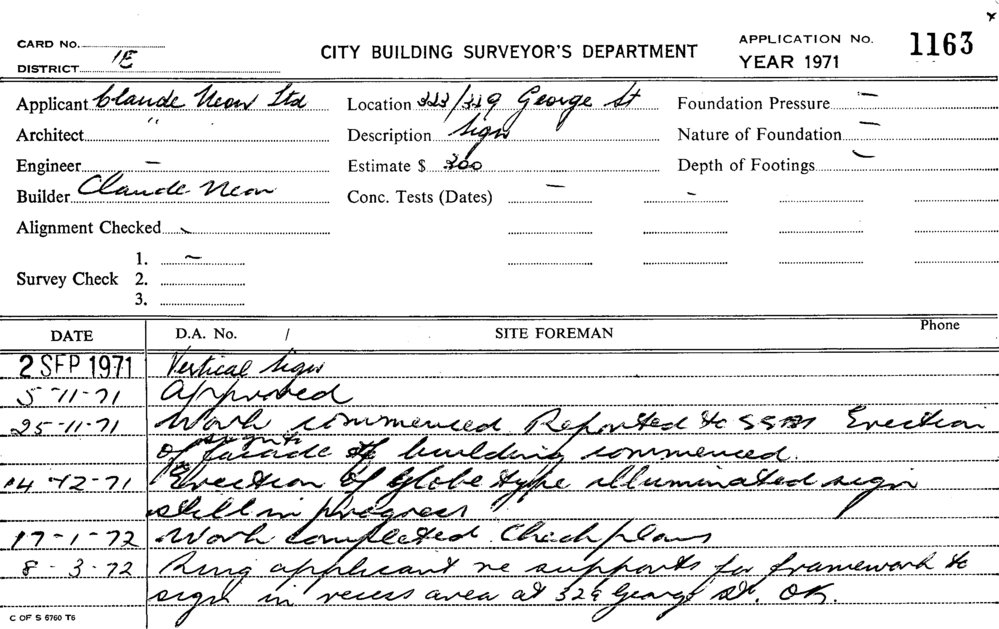 CARD No.
DISTRICT 1E
CITY BUILDING SURVEYOR'S DEPARTMENT
APPLICATION No. 1163
YEAR 1971
Applicant Claude Neon Ltd
Location 323/329 George St
Foundation Pressure —
Architet "
Description Sign
Nature of Foundation —
Engineer —
Estimate $ 300
Depth of Footings —
Builder Claude Neon
Conc. Tests (Dates) — -
Alignment Checked -
Survey Check
1. ~
2.
3.
DATE D.A. No. / SITE FOREMAN Phone
2 SEP 1971 Vertical Sign
5-11-71 Approved
25-11-71 Work commenced Reported to Erection
of signs to facade of building commenced.
14-12-71 Erection of globe type illuminated sign
still in progress
17-1-72 Work completed. Check plans
8-3-72 Ring applicant re supports for framework to
sign in recess area at 329 George St. OK.
C OF S 6760 T6